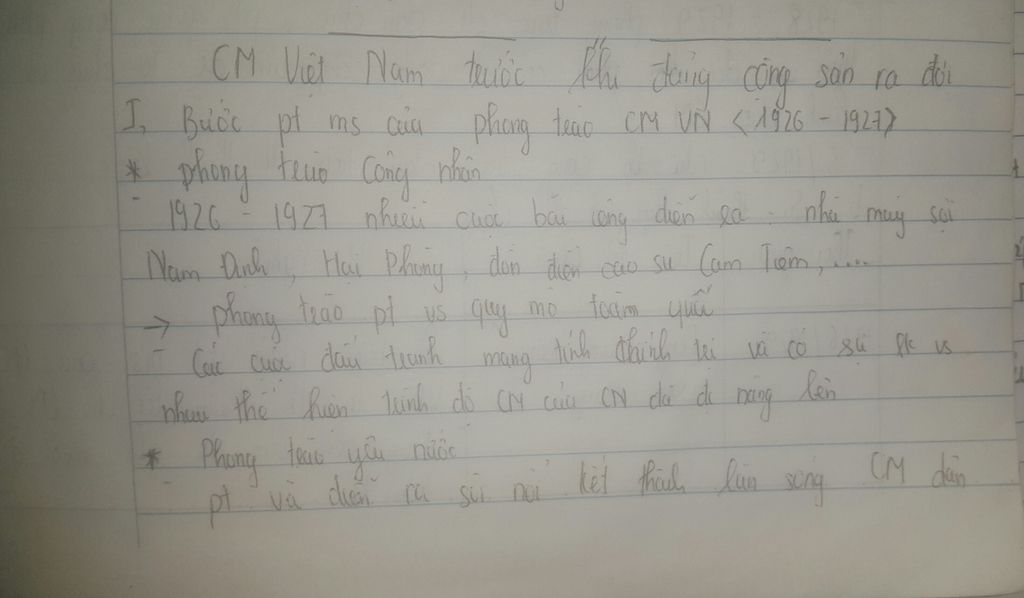 CM Việt Nam trước khi đảng cộng sản ra đời
I, Bước pt ms của phong trào CM VN <1926 - 1927>
* phong trào Công nhân
- 1926 - 1927 nhiều cuộc bãi công diễn ra: nhà máy sợi
Nam Định, Hải Phòng, đồn điền cao su Cam Tiêm,....
→ phong trào pt vs quy mô toàn quốc
- Các cuộc đấu tranh mang tính chính trị và có sự lk vs
nhau thể hiện trình độ CM của CN đã đc nâng lên
* Phong trào yêu nước
- pt và diễn ra sôi nổi kết thành làn sóng CM dân